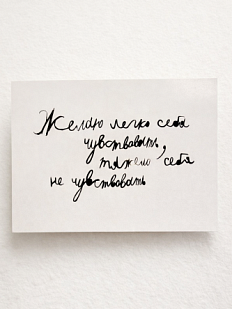 Желаю легко себя
чувствовать,
тяжело себя
не чувствовать